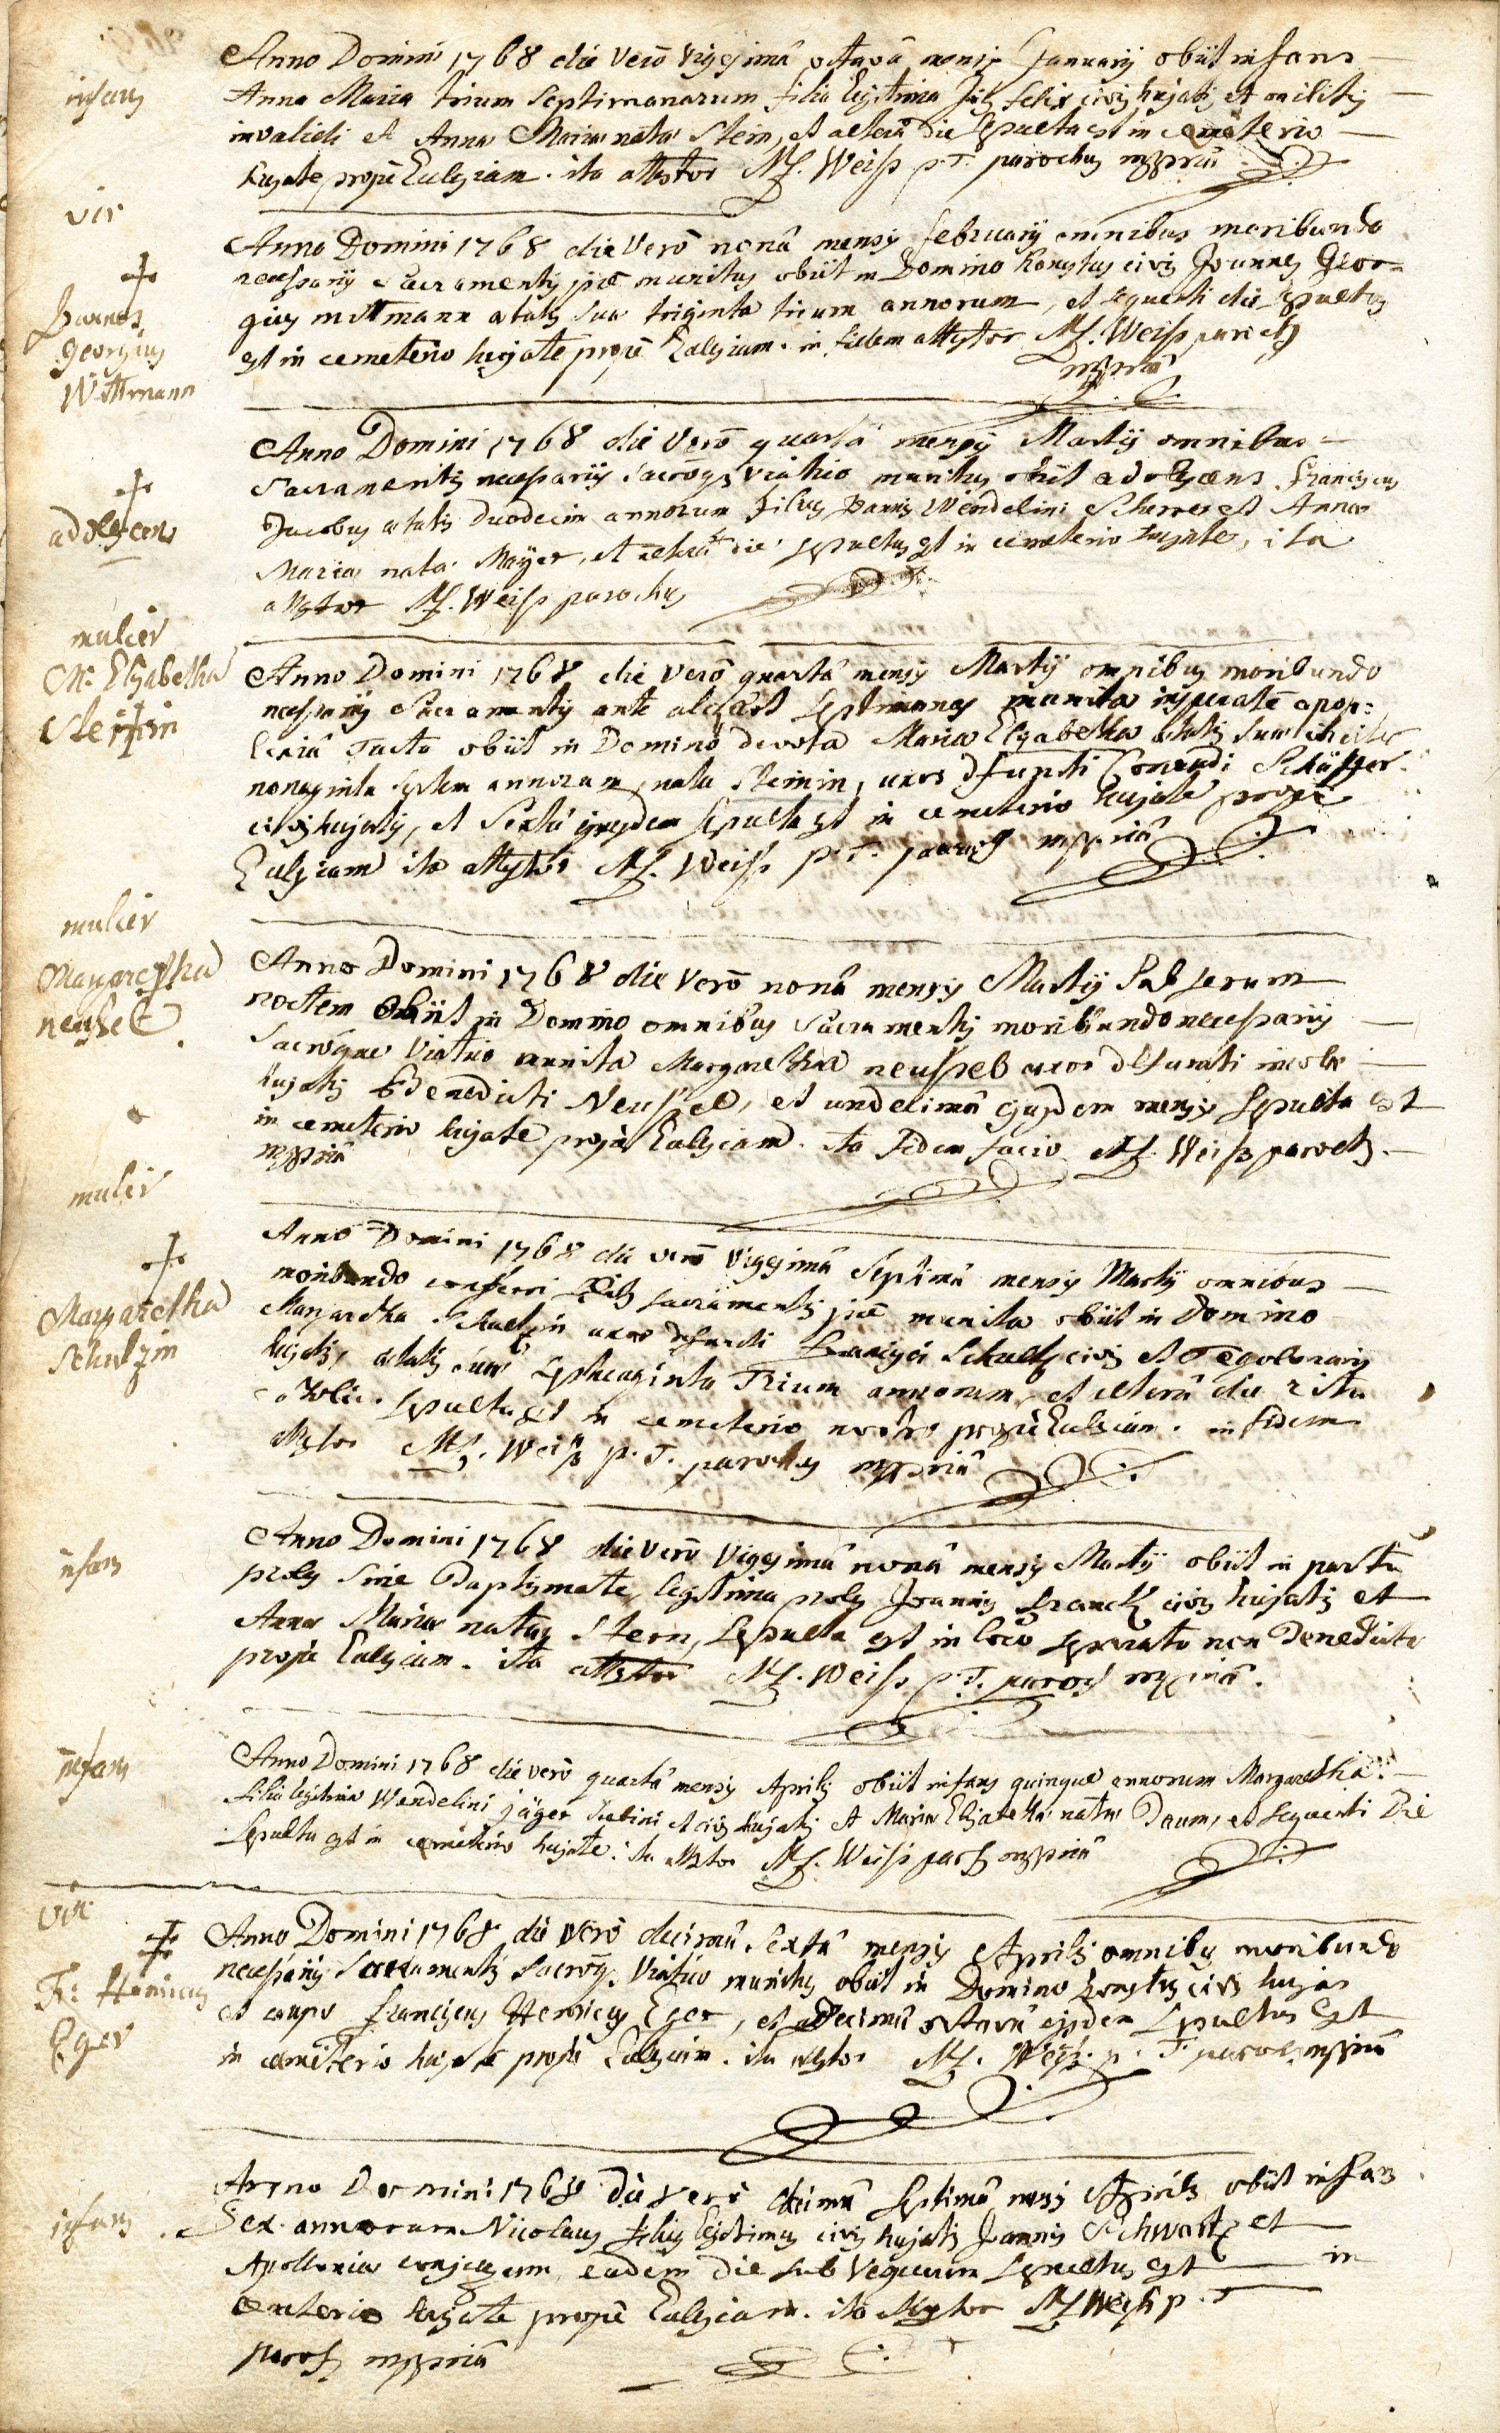 infans
Anno Domini 1768 die verò vigesimâ octavâ mensis Januarij obiit infans
Anna Maria trium septimanarum filia legitima Felix civis hujatis et militis
invalidi et Anna Maria nata Stein, et alterâ die sepulta est in cemeterio
hujate propè Ecclesiam. ita attestor M. Weiss p.T. parochus mppriâ
vir
Joannes
Georgius
Wittmann
Anno Domini 1768 die verò nonâ mensis februarij omnibus moribundo
necessarijs Sacramentis piè munitus obiit in Domino honestus civis Joannes Geor=
gius Wittmann ætatis suæ triginta trium annorum, et sequenti die sepultus
est in cemeterio hujate propè Ecclesiam. in fidem attestor M. Weiss paroch
mppriâ
adolescens
Anno Domini 1768 die verò quartâ mensis Martij omnibus
Sacramentis necessarijs sacroq3 viatico munitus obiit adolescens Franciscus
Jacobus ætatis duodecim annorum filius Joannis Wendelini Scherer et Annæ
Maria nata Mayer, et alterâ die sepultus est in cemeterio hujate, ita
attestor M. Weiss parochus
mulier
M: Elisabetha
Steinin
Anno Domini 1768 die verò quartâ mensis Martij omnibus moribundo
necessarijs Sacramentis ante aliquot septimanas munita insperatè apop=
lexiâ tacta obiit in Domino devota Maria Elisabetha ætatis suæ
nonaginta septem annorum, nata Steinin, uxor defuncti Conradi Schäffer
civis hujatis, et Sextâ ejusdem sepulta est in cemeterio hujate propè
Ecclesiam ita attestor M. Weiss p.T. paroch mppriâ
mulier
Margaretha
neussel
Anno Domini 1768 die verò nonâ mensis Martij sub serum
noctem obiit in Domino omnibus Sacramentis moribundo necessarijs
Sacroque viatico munita Margaretha neussel uxor defuncti incolæ
hujatis Benedicti Neussel, et undecimâ ejusdem mensis sepulta est
in cemeterio hujate propè Ecclesiam. ita fidem facio M. Weiss paroch.
mppriâ
mulier
Margaretha
Schultzin
Anno Domini 1768 die verò vigesimâ septimâ mensis Martij omnibus
moribundo conferri solitis sacramentis piè munita obiit in Domino
Margaretha Schultzin uxor defuncti Francisci Schultz civis et Tegularij
hujatis, ætatis suæ septuaginta trium annorum, et alterâ die ritu
catholico sepulta est in cemeterio nostro propè Ecclesiam. in fidem
attestor M. Weiss p.T. parochus mppriâ
infans
Anno Domini 1768 die verò vigesimâ nonâ mensis Martij obiit in partu
proles sine Baptismate, legitima proles Joannis Franck civis hujatis et
Annæ Mariæ natæ Stern, sepulta est in loco separato non benedicto
propè Ecclesiam. ita attestor M. Weiss p.T. paroch mppriâ.
infans
Anno Domini 1768 die verò quartâ mensis Aprilis obiit infans quinque annorum Margaretha
filia legitima Wendelini jäger et civis hujatis et Mariæ Elisabetha natæ Daum, et sequenti die
Sepulta est in cemeterio hujate. ita attestor M. Weiss paroch mppriâ
vir
Fr: Henricus
Eger
Anno Domini 1768 die verò decimâ sextâ mensis Aprilis omnibus moribundo
necessarijs Sacramentis sacroq3 viatico munitus obiit in Domino honestus civis hujas
et caupo Franciscus Henricus Eger, et decimâ octavâ ejusdem sepultus est
in cemeterio hujate propè Ecclesiam. ita attestor M. Weiss. p. T. paroch mppriâ
infans
Anno Domini 1768 die verò decimâ septimâ mensis Aprilis obiit infans
Sex annorum Nicolaus filius legitimus civis hujatis Joannis Schwartz et
Apollonia conjugum, eadem die sub vesperum sepultus est in
cemterio hujate propè Ecclesiam. ita attestor M. Weiss p. T
paroch mppriâ